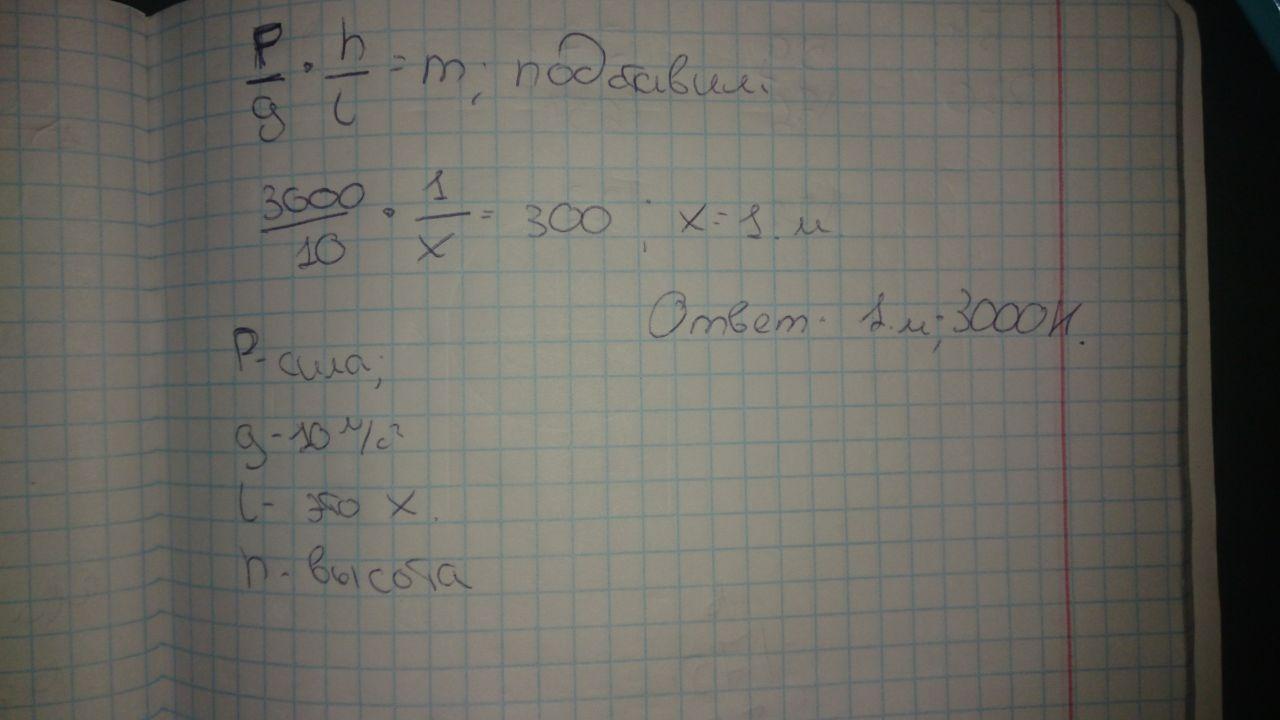 P/g · h/l = m; подставим:
3600/10 · 1/x = 300; x = 1. м
Ответ: 1. м; 3000Н.
P - сила;
g - 10 м/с²
l - это x.
h - высота